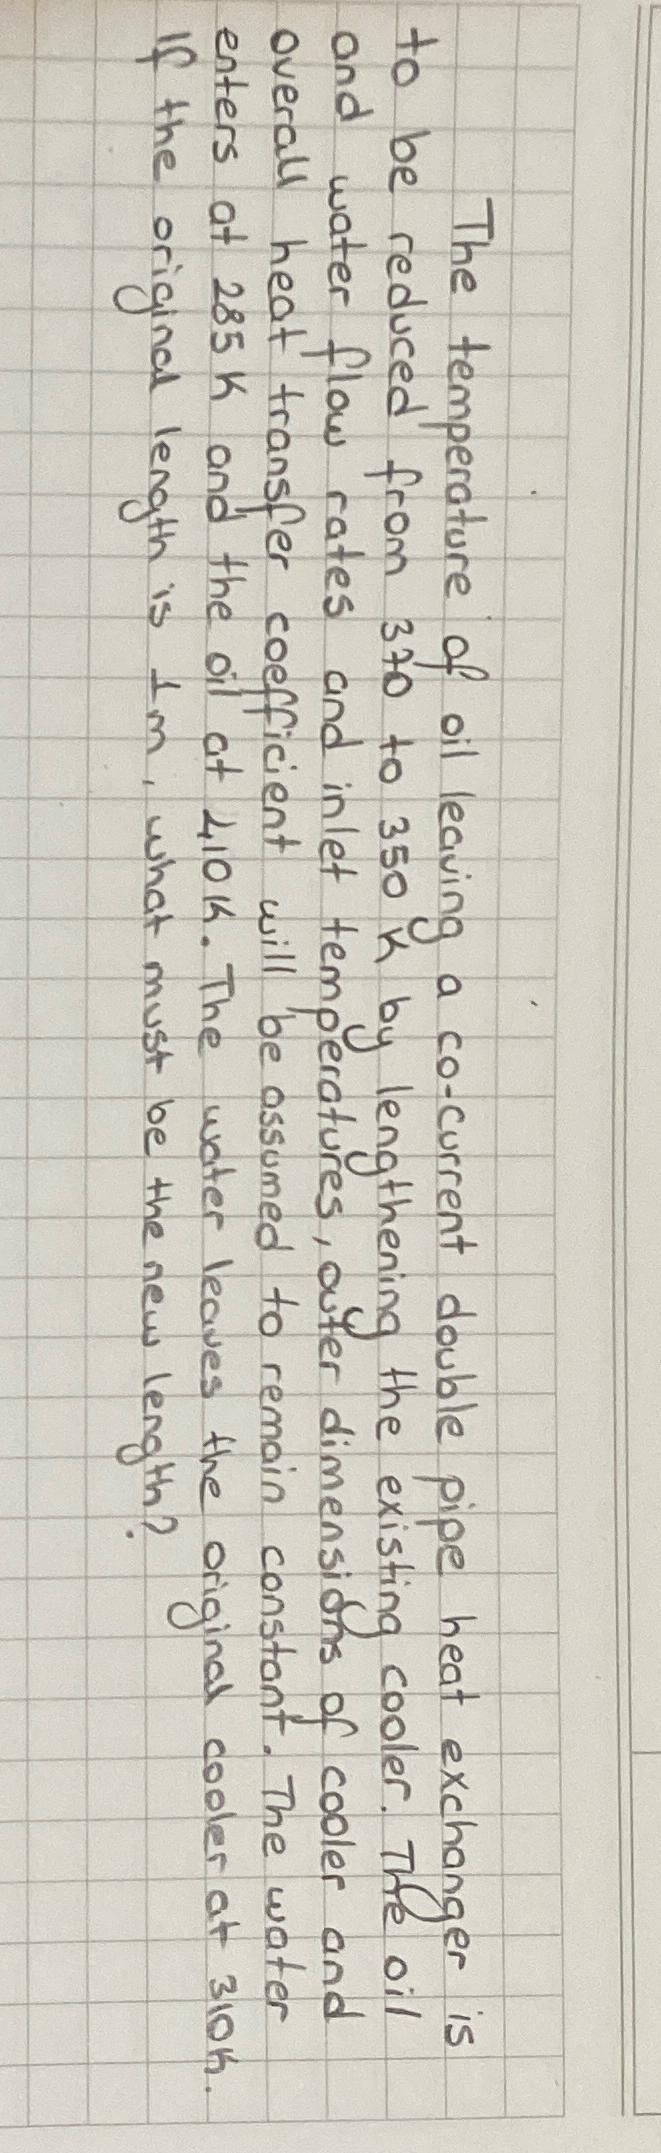 The temperature of oil leaving a co-current double pipe heat exchanger is
to be reduced from 370 to 350 K by lengthening the existing cooler. The oil
and water flow rates and inlet temperatures, outer dimensions of cooler and
overall heat transfer coefficient will be assumed to remain constant. The water
enters at 285 K and the oil at 410 K. The water leaves the original cooler at 310 K.
If the original length is 1m, what must be the new length?